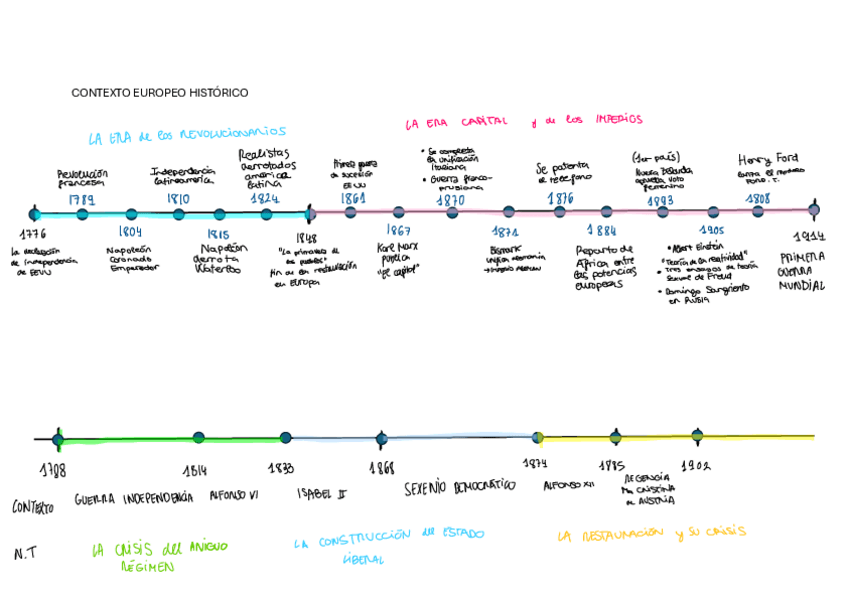 CONTEXTO EUROPEO HISTÓRICO
LA ERA de los REVOLUCIONARIOS
LA ERA CAPITAL y de los IMPERIOS
Revolución
francesa
1789
Independencia
latinoamerica
1810
Realistas
derrotados
america
latina
1824
de sucesión
EEUU
1861
• Se completa
la unificación
italiana
• Guerra franco-
prusiana
1870
Se patenta
el telefono
1876
(1er país)
Nueva Zelanda
voto
femenino
1893
Henry Ford
1808
1776
La declaración
de Independencia
de EEUU
1804
Napoleón
coronado
Emperador
1815
Napoleón
derrota
Waterloo
1848
"La primavera de
los pueblos"
fin de la restauración
en Europa
1867
Karl Marx
publica
"el capital"
1871
Bismark
unifica Alemania
1884
Reparto de
África entre
las potencias
europeas
1905
• Albert Einstein
"Teoría de la relatividad"
• Tres ensayos de teoría
sexual de Freud
• Domingo Sangriento
en RUSIA
1914
PRIMERA
GUERRA
MUNDIAL
1788
1814
1833
1868
1874
1885
1902
CONTEXTO
GUERRA INDEPENDENCIA
ALFONSO VI
ISABEL II
SEXENIO DEMOCRÁTICO
ALFONSO XII
REGENCIA
Mª CRISTINA
de AUSTRIA
N.T
LA CRISIS del ANIGUO
RÉGIMEN
LA CONSTRUCCIÓN del ESTADO
LIBERAL
LA RESTAURACIÓN y SU CRISIS